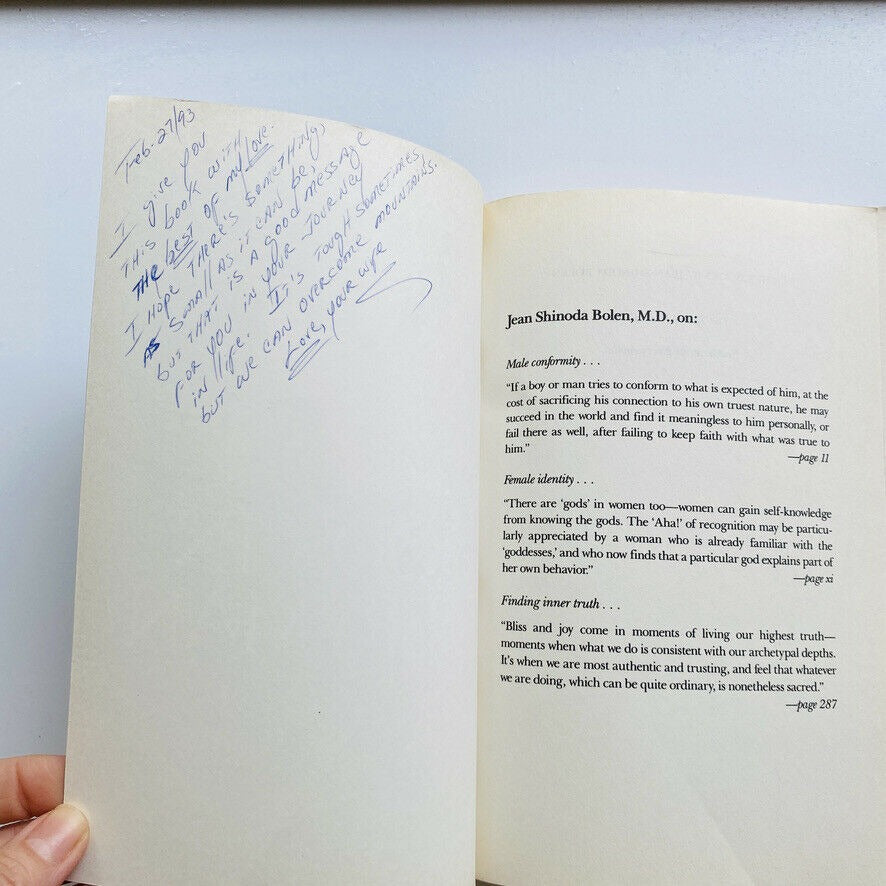 Feb-27/93
I give you
THIS book WITH
THE BEST OF my Love.
I HOPE THERE'S SOMETHING,
AS SMALL AS IT CAN BE,
but THAT IS A GOOD MESSAGE
FOR YOU IN YOUR JOURNEY
IN life. IT'S TOUGH SOMETIMES,
but WE CAN OVERCOME MOUNTAINS.
Love, your wife
Jean Shinoda Bolen, M.D., on:
Male conformity . . .
“If a boy or man tries to conform to what is expected of him, at the
cost of sacrificing his connection to his own truest nature, he may
succeed in the world and find it meaningless to him personally, or
fail there as well, after failing to keep faith with what was true to
him.”
—page 11
Female identity . . .
“There are ‘gods’ in women too—women can gain self-knowledge
from knowing the gods. The ‘Aha!’ of recognition may be particu-
larly appreciated by a woman who is already familiar with the
‘goddesses,’ and who now finds that a particular god explains part of
her own behavior.”
—page xi
Finding inner truth . . .
“Bliss and joy come in moments of living our highest truth—
moments when what we do is consistent with our archetypal depths.
It's when we are most authentic and trusting, and feel that whatever
we are doing, which can be quite ordinary, is nonetheless sacred.”
—page 287